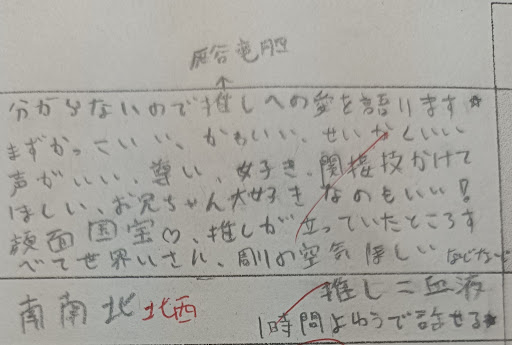 灰谷竜胆
↑
分からないので推しへの愛を語ります★
まずかっこいい、かわいい、せいかくいい
声がいい、尊い、好き、関接技かけて
ほしい、お兄ちゃん大好きなのもいい!
顔面国宝♡、推しが立っていたところす
べて世界いさん、周りの空気ほしい などなど
南南北 北西
推し=血液
1時間よゆうで話せる★